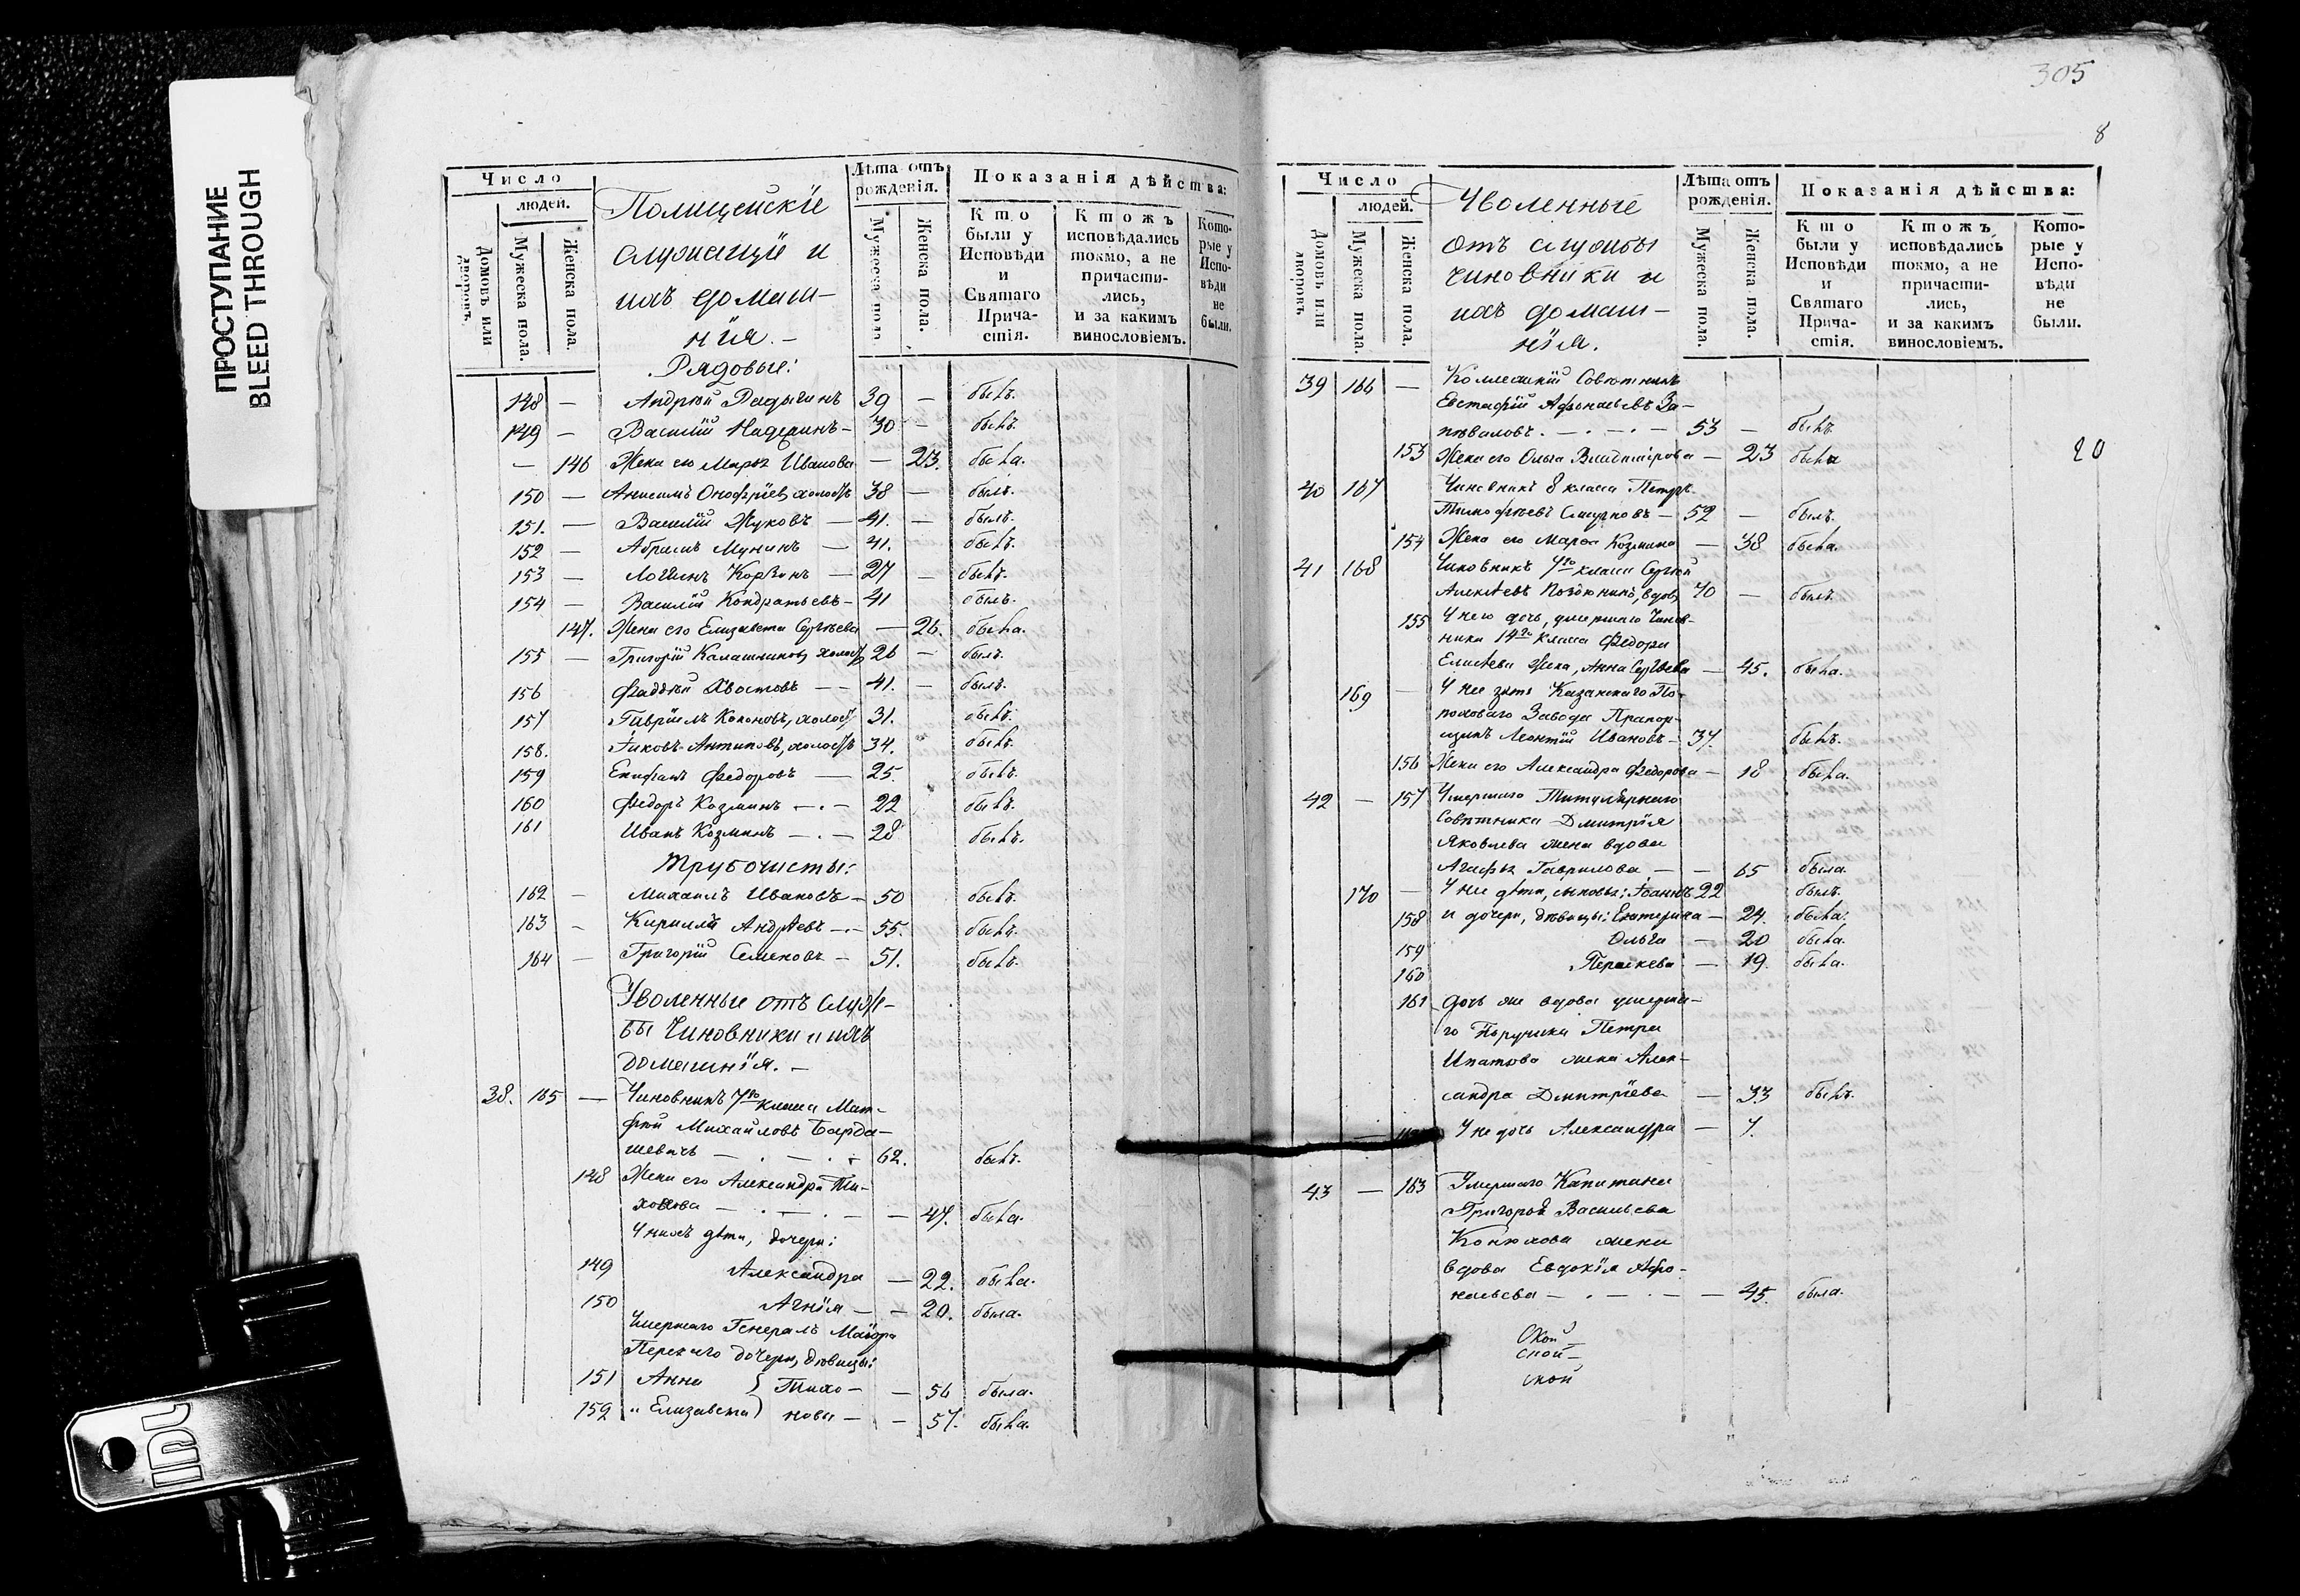 ПРОСТУПАНИЕ
BLEED THROUGH
Число
людей.
Домовъ или дворовъ.
Мужеска пола.
Женска пола.
Полицейскіе
служащіе и
ихъ домаш-
нія. –
Рядовые:
Лѣта отъ рожденія.
Мужеска пола
Женска пола.
Показанія дѣйства:
Кто были у Исповѣди и Святаго Прича-стія.
Ктожъ исповѣдались токмо, а не причасти-лись, и за какимъ винословіемъ.
Кото-рые у Испо-вѣди не были.
148 – Андрей 39 – былъ.
149 – Василій 30 – былъ.
– 146 Жена его Марѳа Иванова – 23. была.
150 – Анисимъ Онофріев, холостъ 38 – былъ.
151. – Василій Жуковъ – 41. – былъ.
152 – Абрамъ Мунинъ – 41. былъ.
153 – Логинъ – 27 – былъ.
154 – Василій Кондратьевъ – 41 былъ.
147. Жена его Елизавета Сергѣева – 26. была.
155 – Григорій Калашников, холост 26 – былъ.
156 Фадѣй Хвостовъ – – 41. – былъ.
157 Гаврiилъ Кононовъ, холост 31. былъ.
158. Яковъ Антиповъ, холостъ 34. былъ.
159 Епифанъ Федоровъ – 25. былъ.
160 Федоръ Козминъ – . – 22 былъ.
161 Иванъ Козминъ – . – 28 былъ.
Трубочисты:
162 – Михаилъ Ивановъ – 50 былъ.
163 – Кириллъ Андрѣевъ – . – 55. былъ.
164 – Григорій Семеновъ – 51. былъ.
Уволенные отъ служ-
бы Чиновники и ихъ
домашнія. –
38. 165 – Чиновникъ 7го класса Мат-
фей Михайловъ Барда-
шевичъ – . – . – 62. былъ.
148 Жена его Александра Ти-
хонова – . – . – – 47. была.
У нихъ дѣти, дочери:
149 Александра – 22. была.
150 Агнія – – 20. была.
Умершаго Генералъ Маіора
дочери, дѣвицы:
151 Анна } Тихо- – 56 была.
152 и Елизавета } новы – – 57. была.
305
8
Число
людей.
Домовъ или дворовъ
Мужеска пола.
Женска пола.
Уволенные
отъ службы
чиновники и
ихъ домаш-
нія.
Лѣта отъ рожденія.
Мужеска пола.
Женска пола.
Показанія дѣйства:
Кто были у Исповѣди и Святаго Прича-стія.
Ктожъ исповѣдались токмо, а не причасти-лись, и за какимъ винословіемъ.
Кото-рые у Испо-вѣди не были.
39 166 – Коллежскій Совѣтникъ
Евстафій Афонасьевъ За-
пѣваловъ. – . – . – 53 – былъ.
153 Жена его Ольга Владимірова – 23 была
20
40 167 Чиновникъ 8 класса Петръ
Тимофѣевъ Смирновъ – 52 – былъ.
154 Жена его Марѳа Козмина – 38 была.
41 168 Чиновникъ 7го класса Сергѣй
Алексѣевъ Поздюнинъ, вдовъ 70 – былъ.
155 У него дочь, умершаго Чинов-
ника 14го класса Федора
Елисѣева жена, Анна Сергѣева – 45. была.
169 – У нее зять Казанскаго По-
роховаго Завода Прапор-
щикъ Леонтій Ивановъ – 37. былъ.
156 Жена его Александра Федорова – 18 была.
42 – 157 Умершаго Титулярнаго
Совѣтника Дмитрія
Яковлева жена вдова
Агафья Гаврилова – – 65 была.
170 – У нее дѣти, сыновья: Іоаннъ 22 былъ.
158 и дочери, дѣвицы: Екатерина – 24. была.
159 Ольга – 20 была.
160 Параскева – 19. была.
161 Дочь же вдова умерша-
го Поручика Петра
Ипатова жена Алек-
сандра Дмитріева – 33 былъ.
– У нее дочь Александра – 7.
43 – 163 Умершаго Капитана
Григорья Васильева
Конюхова жена
вдова Евдокія Афо-
насьева – . – . – – 45. была.